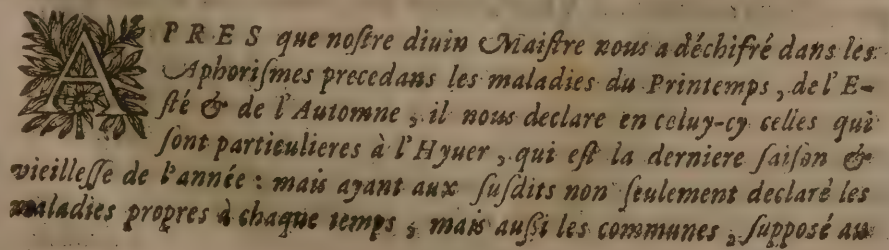 APRES que noſtre diuin Maiſtre nous a déchifré dans les
Aphoriſmes precedans les maladies du Printemps, de l'E-
ſté & de l'Automne, il nous declare en celuy-cy celles qui
ſont particulieres à l'Hyuer, qui eſt la derniere ſaiſon &
vieilleſſe de l'année: mais ayant aux ſuſdits non ſeulement declaré les
maladies propres à chaque temps, mais auſſi les communes, ſuppoſé au